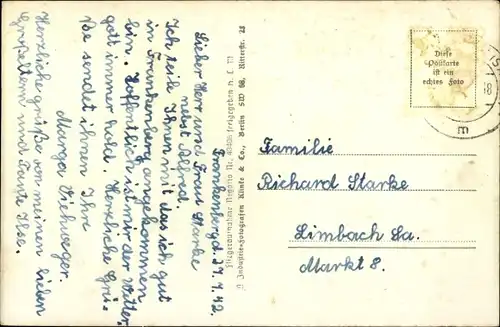 Frankenberg, d. 27.7.42.
Lieber Herr und Frau Starke
nebst Alfred.
Ich teile Ihnen mit das ich gut
in Frankenberg angekommen
bin. Hoffentlich ist mir der Wetter
gott immer hold. Herzliche Grü-
ße sendet ihnen Ihre
Marga
Herzliche Grüße von meinen lieben
Großeltern und Tante Ilse.
Fliegeraufnahme freigegeben d. RLM
Industrie-Fotografen Klinke & Co., Berlin SW 68, Ritterstr. 28
Diese
Postkarte
ist ein
echtes Foto
Familie
Richard Starke
Limbach Sa.
Markt 8.